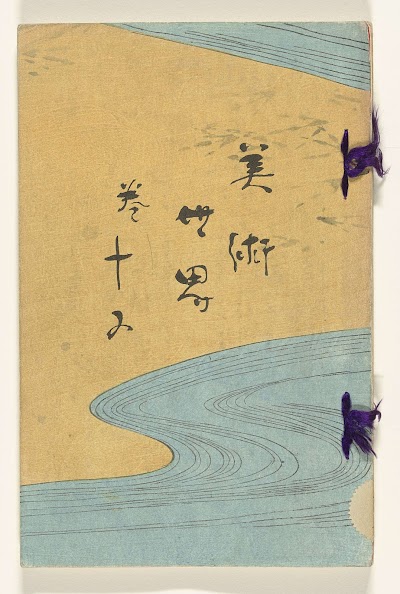 美術
世界
巻十五